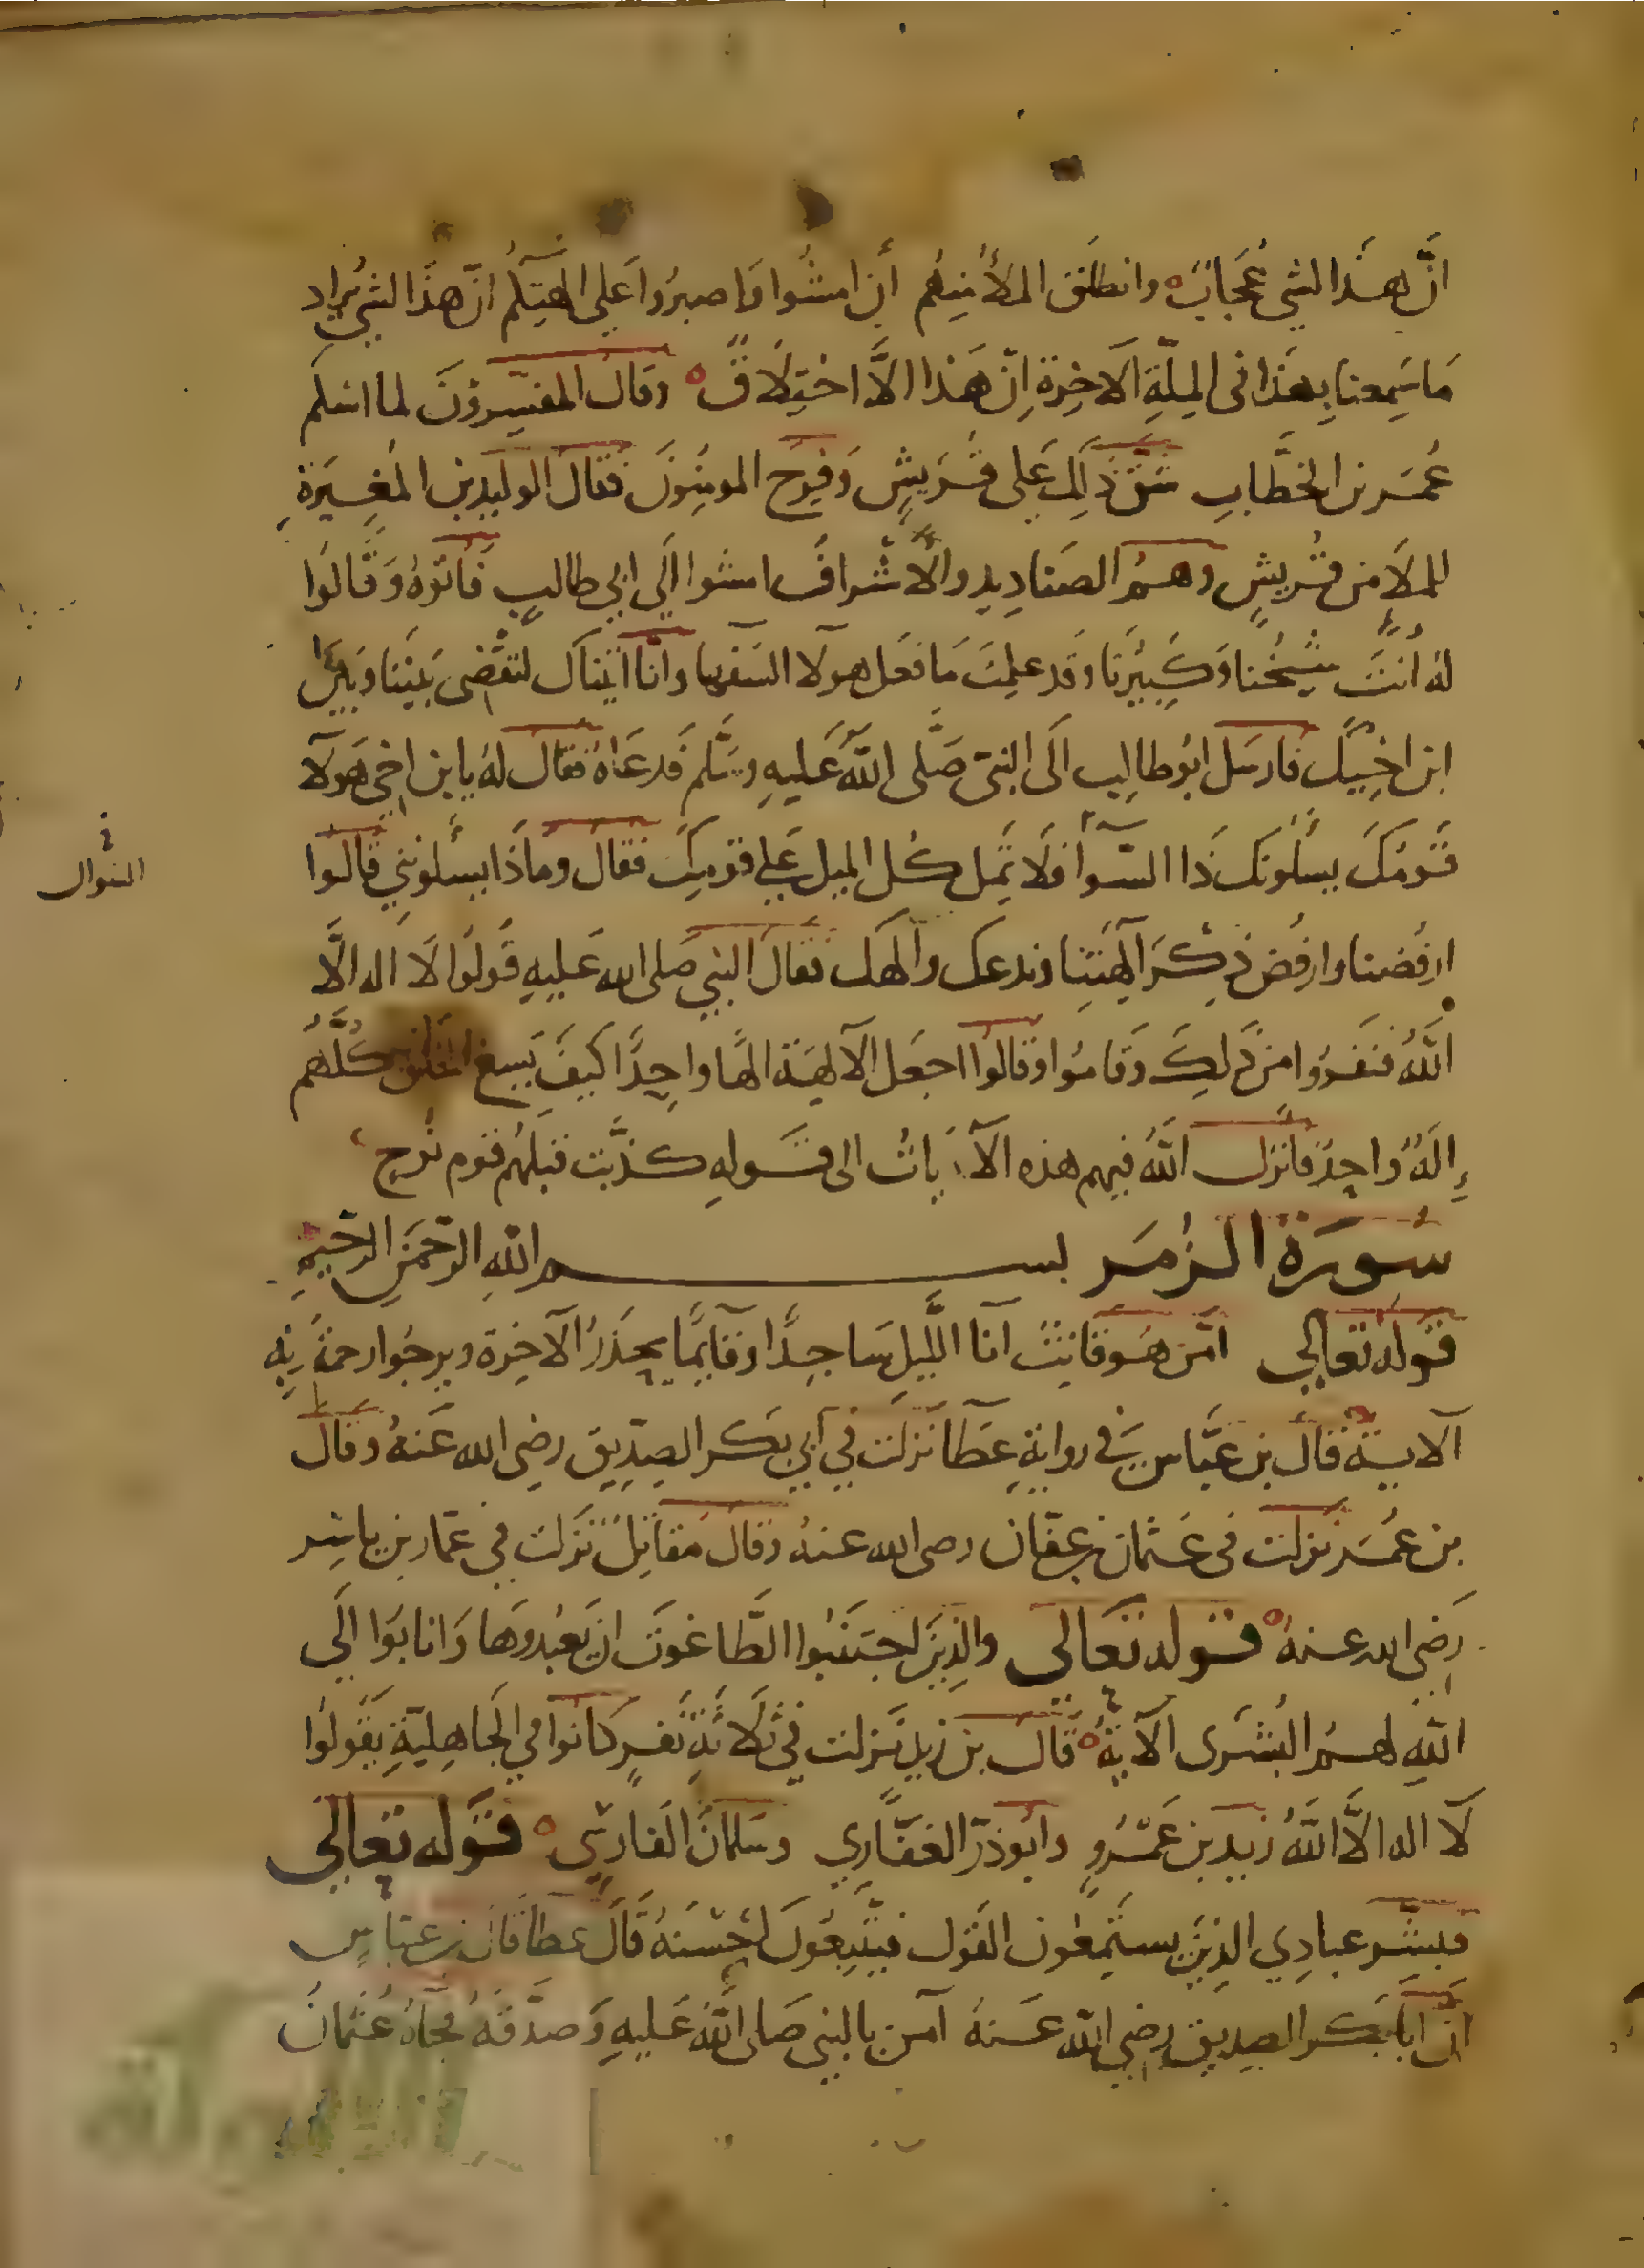 انّ هذا لشي عُجابٌ وانطلق الملأ مِنهُم أنِ امشُوا وَاصبرُوا عَلى الهتِكُم انّ هَذا لشي يُراد
مَا سَمِعنا بِهذا فى المِلّةِ الاخِرة اِنّ هَذا الاَّ اختِلَاقٌ وقال المفسِّروُنَ لما اسلم
عُمَر بن الخطَّابِ شقّ ذلِك عَلى قُرَيشٍ وَفرِحَ المومِنُونَ فقالَ الوليد بن المغِيرَةِ
للملاَ من قُريشٍ وهمُ الصَناديد والأشرافُ امشوا اِلَى ابى طالبٍ فَاتوهُ وَقَالوُا
لهُ انتَ شيخُنا وَكَبيرنا وقد علمتَ مَا فعَل هولآ السفها وانّا اتيناك لتقضى بَيننا وَبَينَ
ابن اخِيك فارسَل ابُو طالِب الَى النبىّ صَلَّى اللّهُ عَليهِ وسَلّم فَدعَاهُ فقالَ لهُ يا بن اخى هولآ
قَومُكَ يسألونك ذا السّوأ فلَا تَمِل كل الميل عَلى قومِكَ فقال وماذَا يسألونني قالوا
السوال
ارفُضنا وارفُض ذِكرَ آلِهتِنا وندعك وآلهك فقالَ النبي صَلى الله عَليهِ قُولوُا لَا اله الَّا
اللّهُ فنفَرُوا من ذلِكَ وَقامُوا وقالوا اجعَل الآلهَة الهًا واحِدًا كيفَ يَسِع الخلق كُلَّهُم
إِلهٌ واحِدٌ فانزل اللّهُ فيهم هذه الآيات الى قَولهِ كذّبت قبلَهُم قوم نُوح
سُورَة الزُمَر بسم اللهِ الرّحمَنِ الرّحيمِ
قولهُ تعالى امّن هُو قانتٌ آنا اللَّيلِ سَاجِدًا وقآيمًا يحذَرُ الآخِرة ويرجُوا رحمةَ رَبِّهِ
الآيــة قالَ بن عَبّاس في روايةِ عَطآ نَزلت فِي أبي بَكر الصِدّيق رضِى الله عَنهُ وقالَ
بن عُمَر نزلت فى عُثمان بن عفّان رضى الله عنهُ وقالَ مُقاتِلٌ نَزَلت فِي عمّار بن ياسِر
رَضِى الله عنهُ قولُه تعَالَى والذِينَ اجتنَبُوا الطَّاغوتَ ان يَعبُدوهَا وَانابُوا الَى
اللّهِ لهمُ البُشرَى الآيةُ قالَ بن زيد نَزلت فِى ثلَاثةِ نَفرٍ كانوا فِي الجَاهِليّةِ يَقُولوُا
لَا اله الاّ اللّهُ زيد بن عَمْروٍ وابُو ذرّ الغفَّاري وسَلمانُ الفارسِّى قَولُه تعَالى
فبشّر عبادِي الذِينَ يستَمِعُون القول فيتَّبعُونَ احْسنَهُ قَالَ عطَآ قالَ بن عبّاسٍ
انّ ابَا بَكر الصِديق رضِى اللّه عَنهُ آمن بالنبى صَلى اللّهُ عَليهِ وَصدَّقهُ فجآهُ عُثمانُ